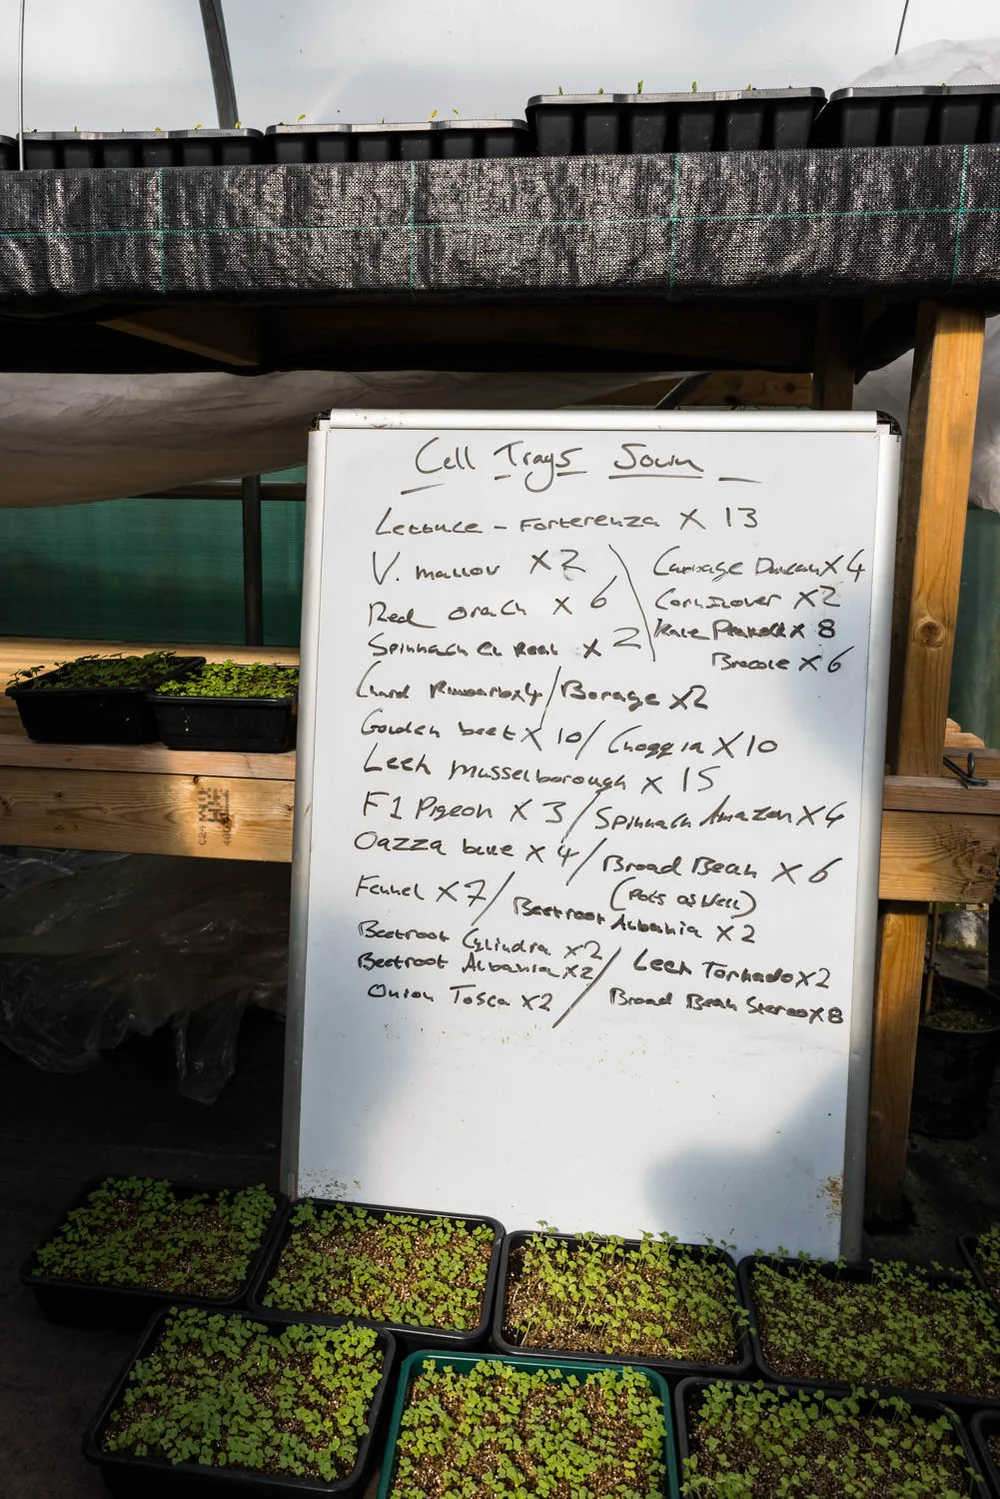 Cell Trays Sown
Lettuce - Forterenza X 13
V. mallow X 2
Cabbage Duncan X 4
Red orach X 6
Cornflower X 2
Spinnach X 2
Kale X 8
Brocole X 6
Chard x4 / Borage X2
Golden beet X 10 / Choggia X 10
Leek Musselborough X 15
F1 Pigeon X 3 / Spinnach Amazon X 4
Oazza blue X 4 / Broad Bean X 6
(Pots as Well)
Fennel X 7 / Beetroot Albania X 2
Beetroot Cylindra X2
Beetroot Albania X2 / Leek Tornado X 2
Onion Tosca X2 / Broad Bean Stereo X 8